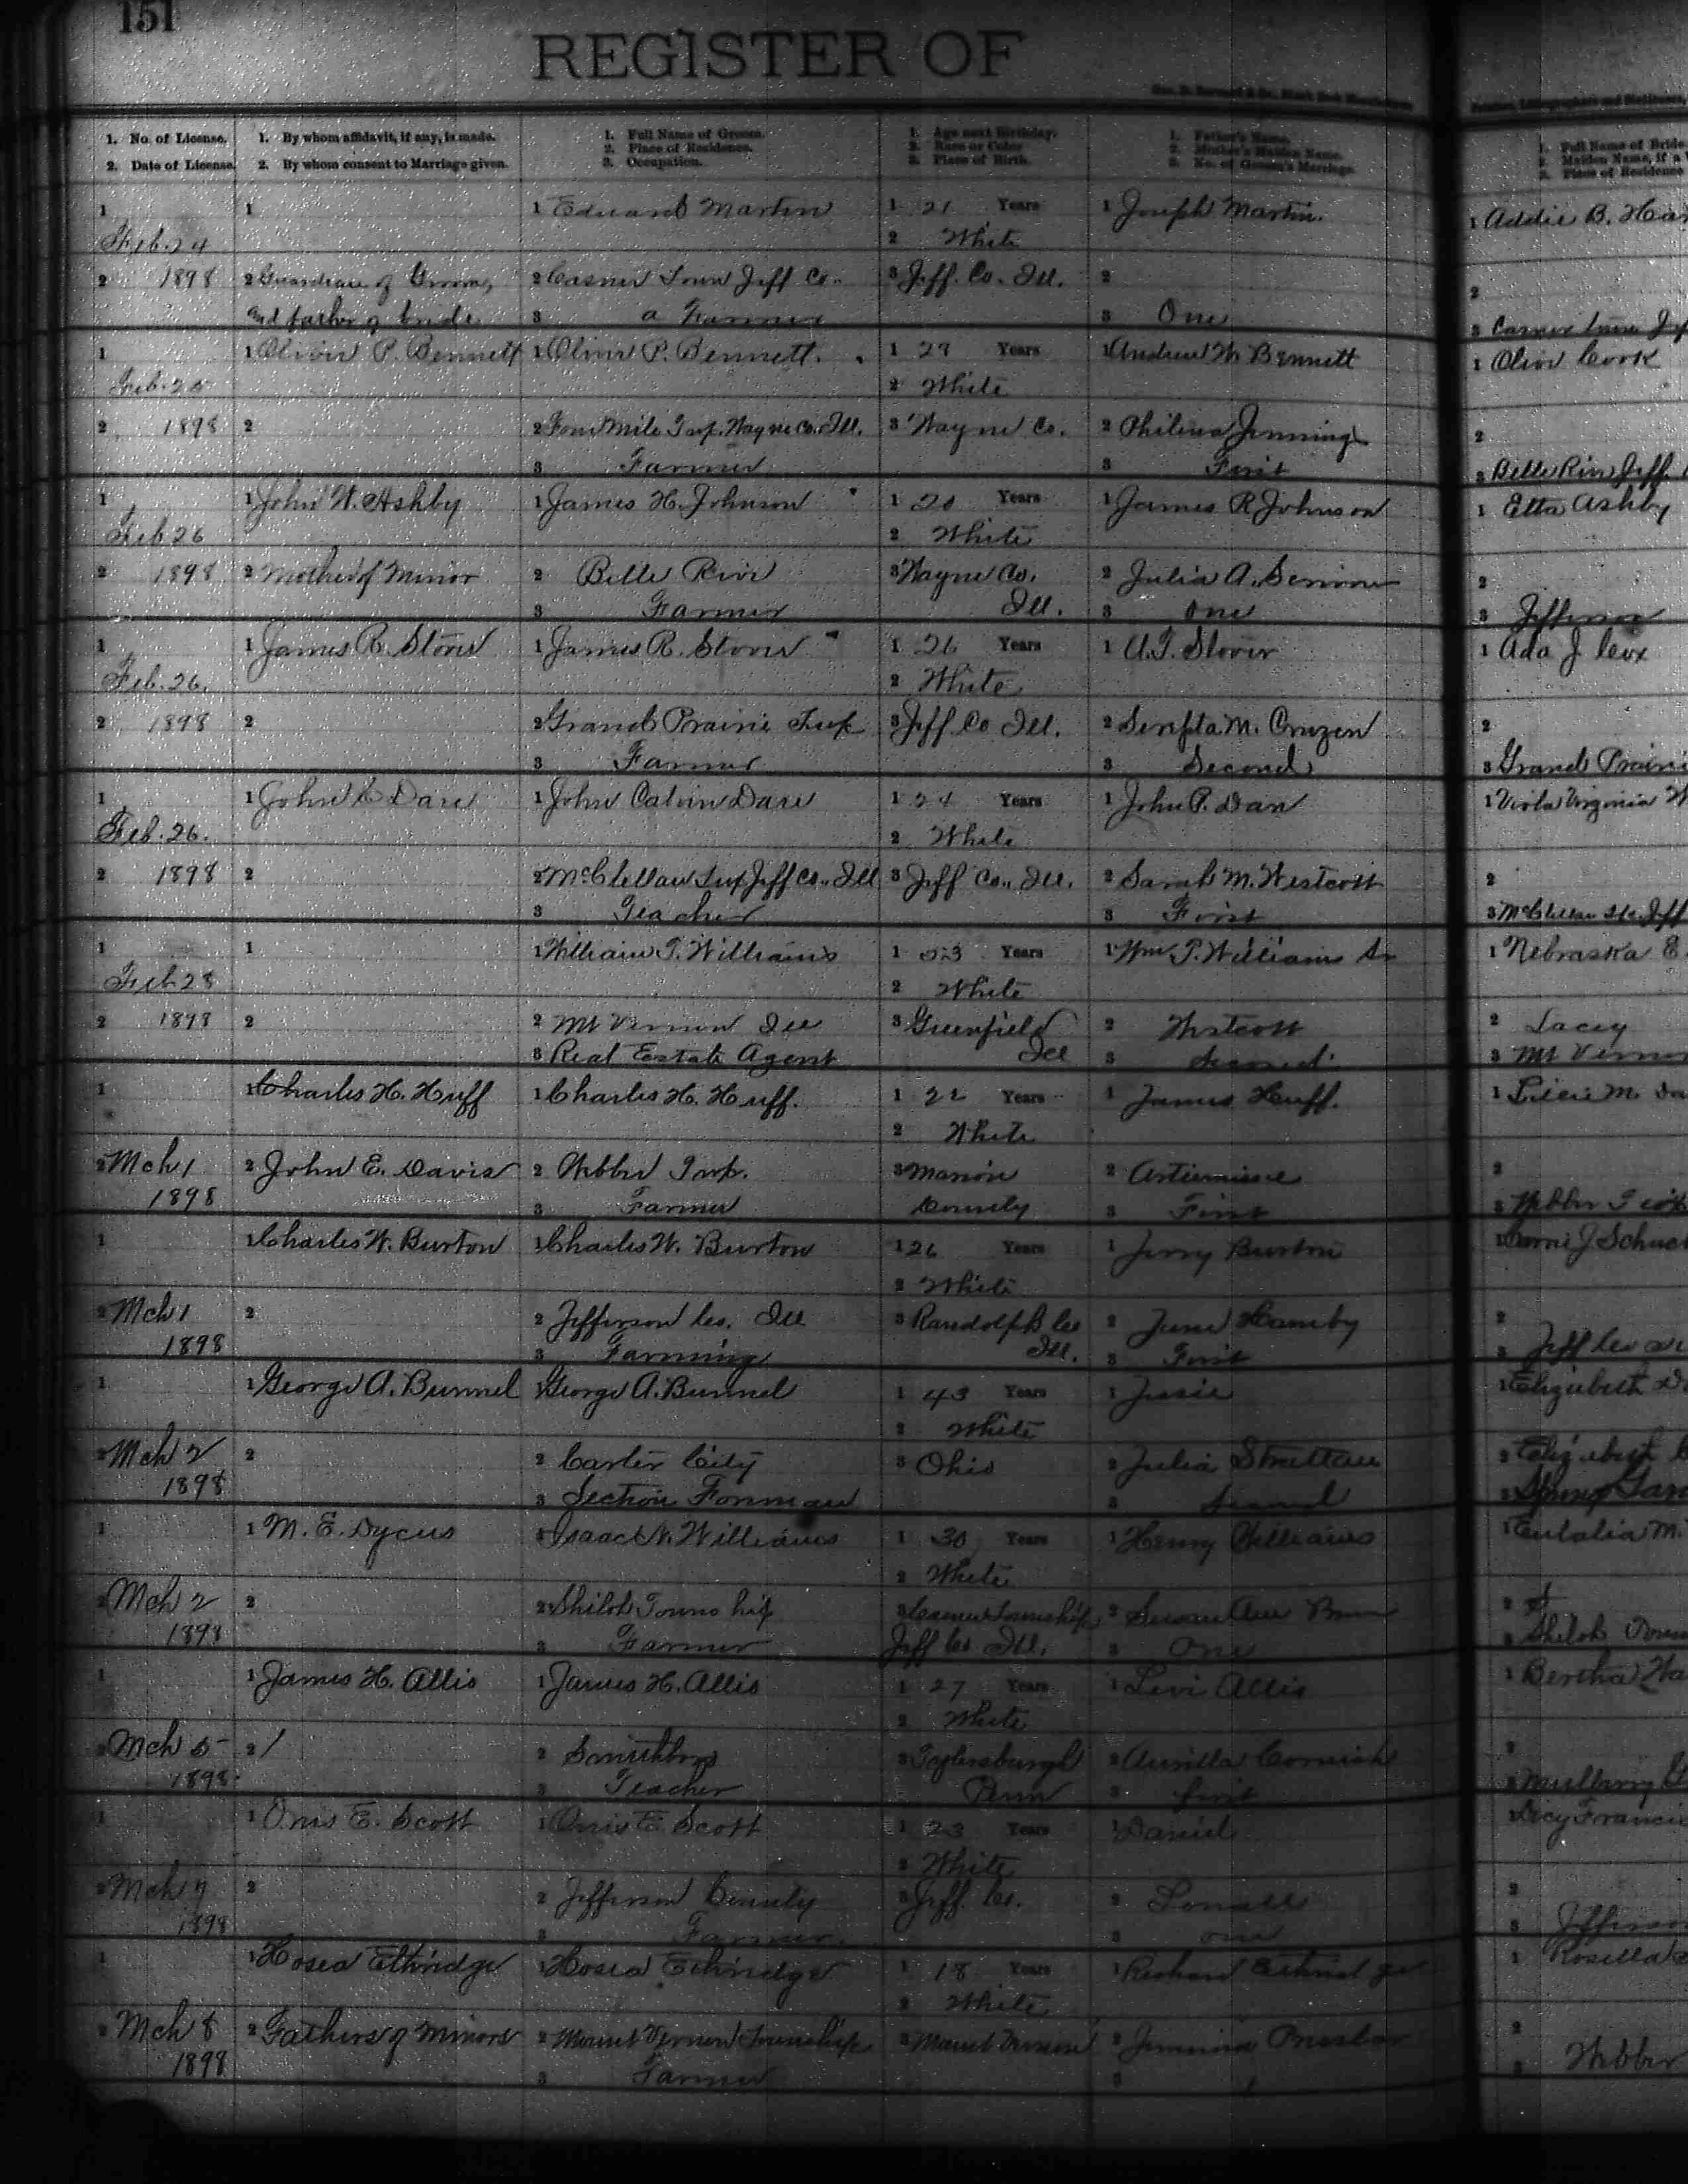 151
REGISTER OF
1. No. of License.
2. Date of License.
1. By whom affidavit, if any, is made.
2. By whom consent to Marriage given.
1. Full Name of Groom.
2. Place of Residence.
3. Occupation.
1. Age next Birthday.
2. Race or Color
3. Place of Birth.
1. Father's Name.
2. Mother's Maiden Name.
3. No. of Groom's Marriage.
1. Full Name of Bride
2. Maiden Name, if a
3. Place of Residence
1 1 1 Eduard Martin 1 21 Years 1 Joseph Martin. 1 Addie B. Har
Feb. 24 2 White
2 1898 2 Guardian of Groom, 2 Casner Town Jeff Co. 3 Jeff. Co. Ill. 2 2
and father of bride 3 a Farmer 3 One 3 Casner
1 1 Oliver P. Bennett 1 Oliver P. Bennett. 1 29 Years 1 Andrew W. Bennett 1 Olive Cook
Feb. 25 2 White
2 1898 2 2 Four Mile Twp. Wayne Co. Ill. 3 Wayne Co. 2 Philena Jennings 2
3 Farmer 3 First 3 Belle Rive Jeff.
1 1 John W. Ashby 1 James H. Johnson 1 20 Years 1 James R Johnson 1 Etta Ashby
Feb 26 2 White
2 1898 2 Mother of Minor 2 Belle Rive 3 Wayne Co. 2 Julia A. 2
3 Farmer Ill. 3 One 3 Jefferson
1 1 James R. Stover 1 James R. Stover 1 26 Years 1 A.T. Stover 1 Ada J Cox
Feb. 26. 2 White
2 1898 2 2 Grand Prairie Twp 3 Jeff Co Ill. 2 M. Cruzen 2
3 Farmer 3 Second 3 Grand Prairi
1 1 John C Dare 1 John Calvin Dare 1 24 Years 1 John P. Dare 1 Viola Virginia W
Feb. 26. 2 White
2 1898 2 2 McClellan Twp Jeff Co. Ill 3 Jeff Co. Ill. 2 Sarah M. Westcott 2
3 Teacher 3 First 3 McClellan Jeff
1 1 1 William T. Williams 1 Years 1 Wm. T. Williams Sr 1 Nebraska E.
Feb 28 2 White
2 1898 2 2 Mt Vernon Ill 3 Greenfield 2 Westcott 2 Lacey
3 Real Estate Agent Ill 3 Second. 3 Mt Vernon
1 1 Charles H. Huff 1 Charles H. Huff. 1 22 Years 1 James Huff. 1 Lillie M. Da
2 White
2 Mch 1 2 John E. Davis 2 Webber Twp. 3 Marion 2 2
1898 3 Farmer County 3 First 3 Webber
1 1 Charles W. Burton 1 Charles W. Burton 1 26 Years 1 Jerry Burton 1 J Schuc
2 White
2 Mch 1 2 2 Jefferson Co. Ill 3 Randolph Co 2 June Hamby 2
1898 3 Farming Ill. 3 First 3 Jeff Co
1 1 George A. Bunnel 1 George A. Bunnel 1 43 Years 1 Jessie 1 Elizabeth D
2 White
2 Mch 2 2 2 Carter City 3 Ohio 2 Julia Strattan 2 Elizabeth
1898 3 Section Forman 3 Second 3 Spring Gar
1 1 M. E. Dycus 1 Isaac N. Williams 1 30 Years 1 Henry Williams 1 Eulalia M.
2 White
2 Mch 2 2 2 Shiloh Township 3 Casner Township 2 Susan Ann 2
1898 3 Farmer Jeff Co Ill. 3 One 3 Shiloh Town
1 1 James H. Allis 1 James H. Allis 1 27 Years 1 Levi Allis 1 Bertha Wa
2 White
2 Mch 5 2 / 2 Smithboro 3 Taylersburgh 2 Aurilla Cornish 2
1898 3 Teacher Penn 3 first 3
1 1 Oris E. Scott 1 Oris E. Scott 1 23 Years 1 Daniel 1 Francis
2 White
2 Mch 7 2 2 Jefferson County 3 Jeff. Co. 2 2
1898 3 Farmer. 3 one 3 Jefferson
1 1 Hosea Ethridge 1 Hosea Ethridge 1 18 Years 1 Richard Ethridge 1 Rosella
2 White
2 Mch 8 2 Fathers of Minors 2 Mount Vernon Township 3 Mount Vernon 2 Jemima 2
1898 3 Farmer 3 3 Webber